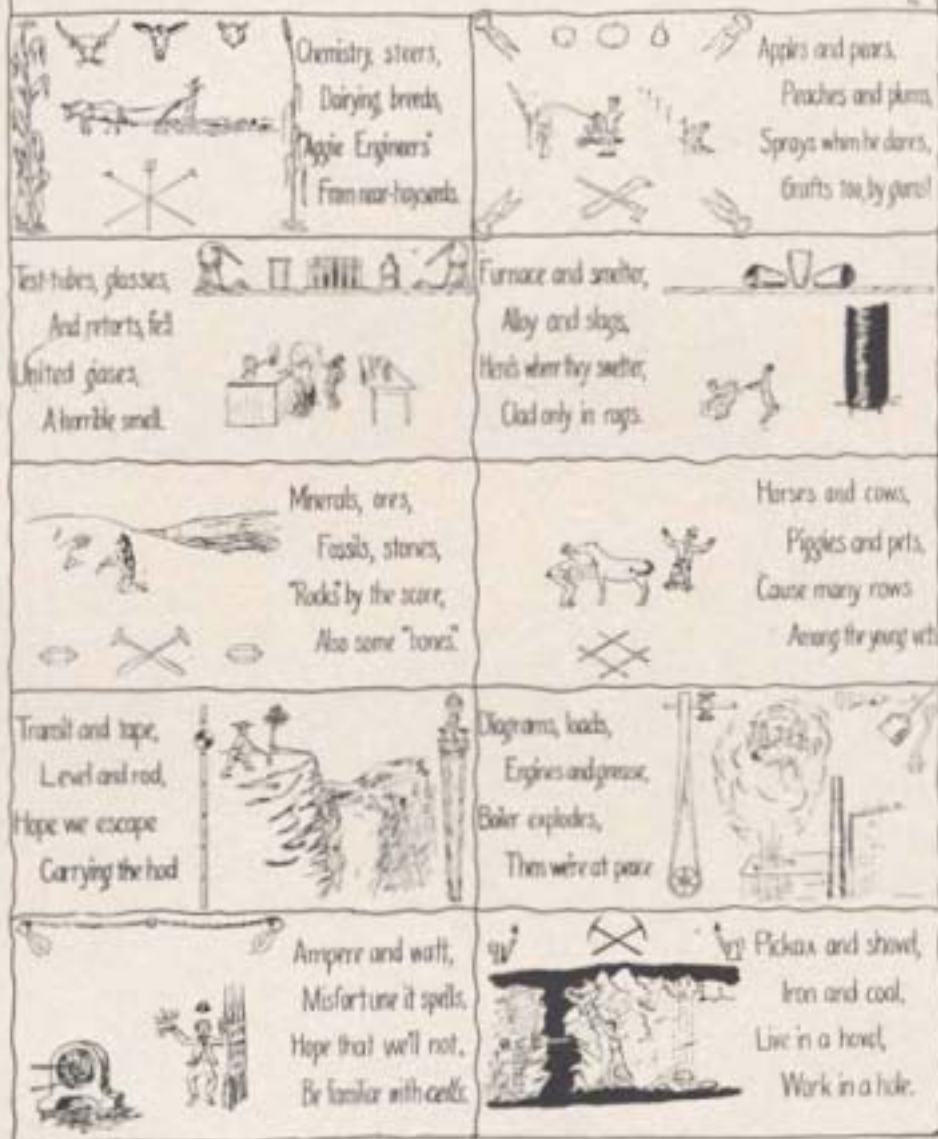 Chemistry, steers,
Dairying, breeds,
"Aggie Engineers"
From near-hayseeds.
Apples and pears,
Peaches and plums,
Sprays when he dares,
Grafts too, by gums!
Test-tubes, glasses,
And retorts, fell
United gases,
A horrible smell.
Furnace and smelter,
Alloy and slags,
Here's where they swelter,
Clad only in rags.
Minerals, ores,
Fossils, stones,
"Rocks" by the score,
Also some "bones".
Horses and cows,
Piggies and pets,
Cause many rows
Among the young vets
Transit and tape,
Level and rod,
Hope we escape
Carrying the hod
Diagrams, loads,
Engines and grease,
Boiler explodes,
Then we're at peace
Ampere and watt,
Misfortune it spells,
Hope that we'll not,
Be familiar with cells.
Pickax and shovel,
Iron and coal,
Live in a hovel,
Work in a hole.